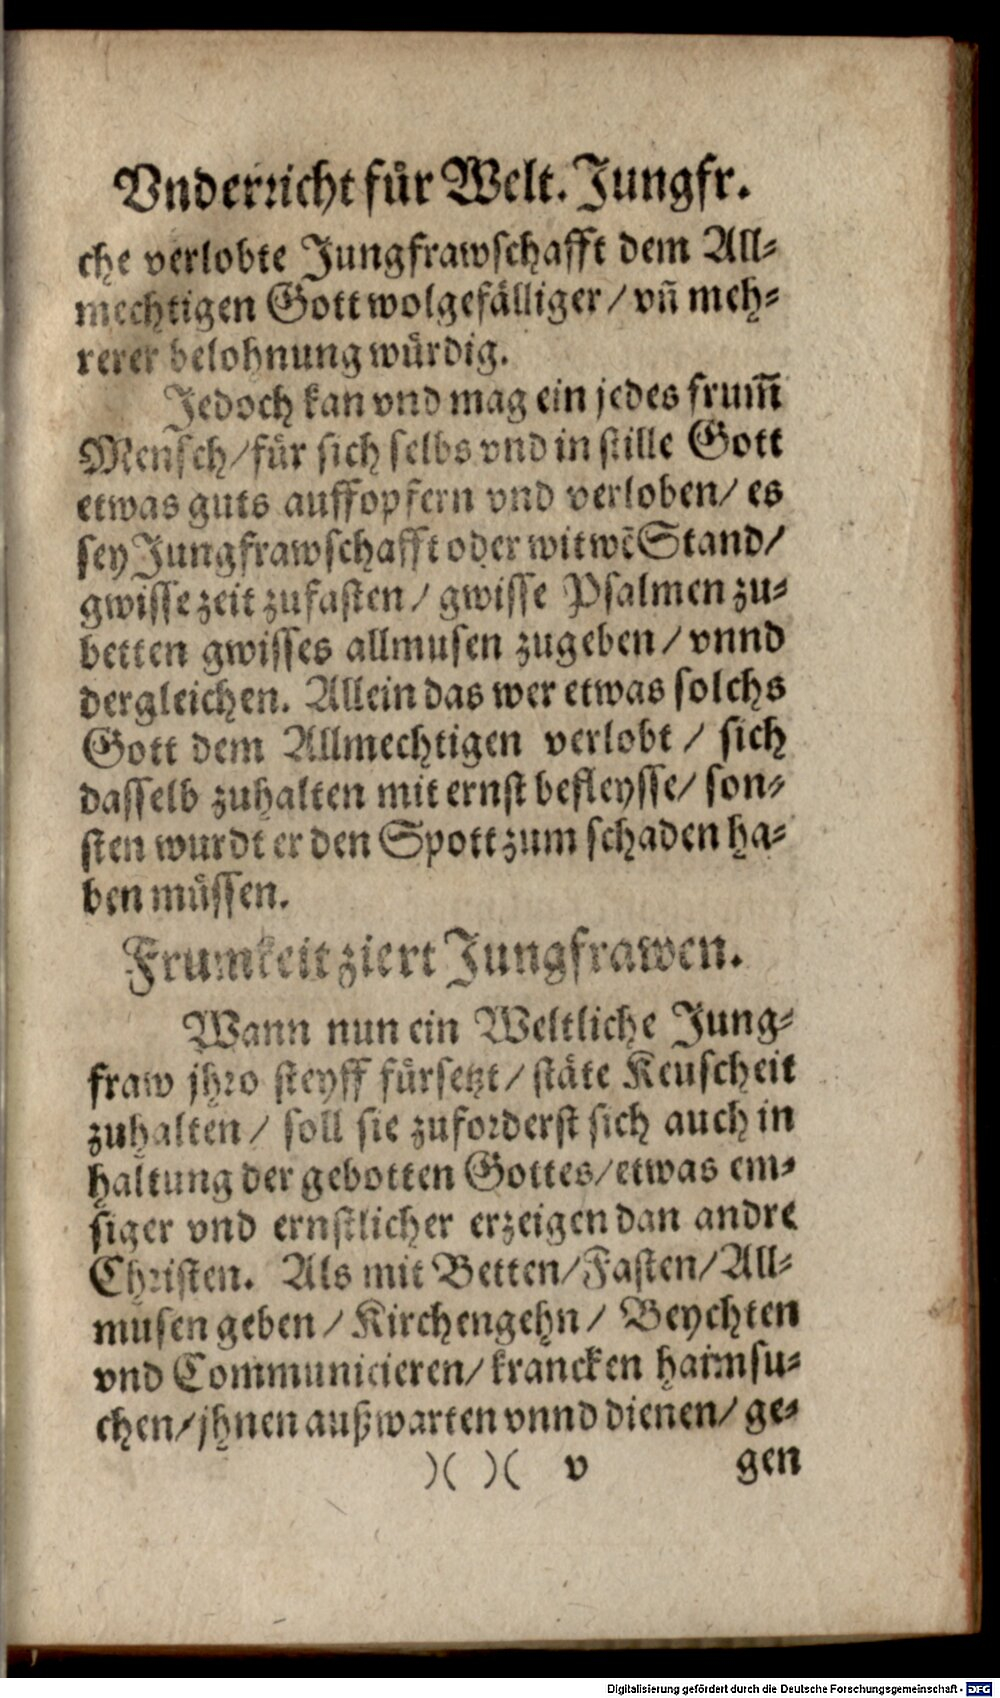 Vnderricht für Welt. Jungfr.
che verlobte Jungfrawschafft dem All-
mechtigen Gott wolgefälliger / vñ meh-
rerer belohnung würdig.
Jedoch kan vnd mag ein jedes frum̃
Mensch / für sich selbs vnd in stille Gott
etwas guts auffopfern vnd verloben / es
sey Jungfrawschafft oder witwẽ Stand /
gwisse zeit zufasten / gwisse Psalmen zu-
betten gwisses allmusen zugeben / vnnd
dergleichen. Allein das wer etwas solchs
Gott dem Allmechtigen verlobt / sich
dasselb zuhalten mit ernst befleysse / son-
sten wurdt er den Spott zum schaden ha-
ben müssen.
Frumkeit ziert Jungfrawen.
Wann nun ein Weltliche Jung-
fraw jhro steyff fürsetzt / stäte Keuscheit
zuhalten / soll sie zuforderst sich auch in
haltung der gebotten Gottes / etwas em-
siger vnd ernstlicher erzeigen dan andre
Christen. Als mit Betten / Fasten / All-
musen geben / Kirchengehn / Beychten
vnd Communicieren / krancken haimsu-
chen / jhnen außwarten vnnd dienen / ge-
)( )( v gen
Digitalisierung gefördert durch die Deutsche Forschungsgemeinschaft - DFG